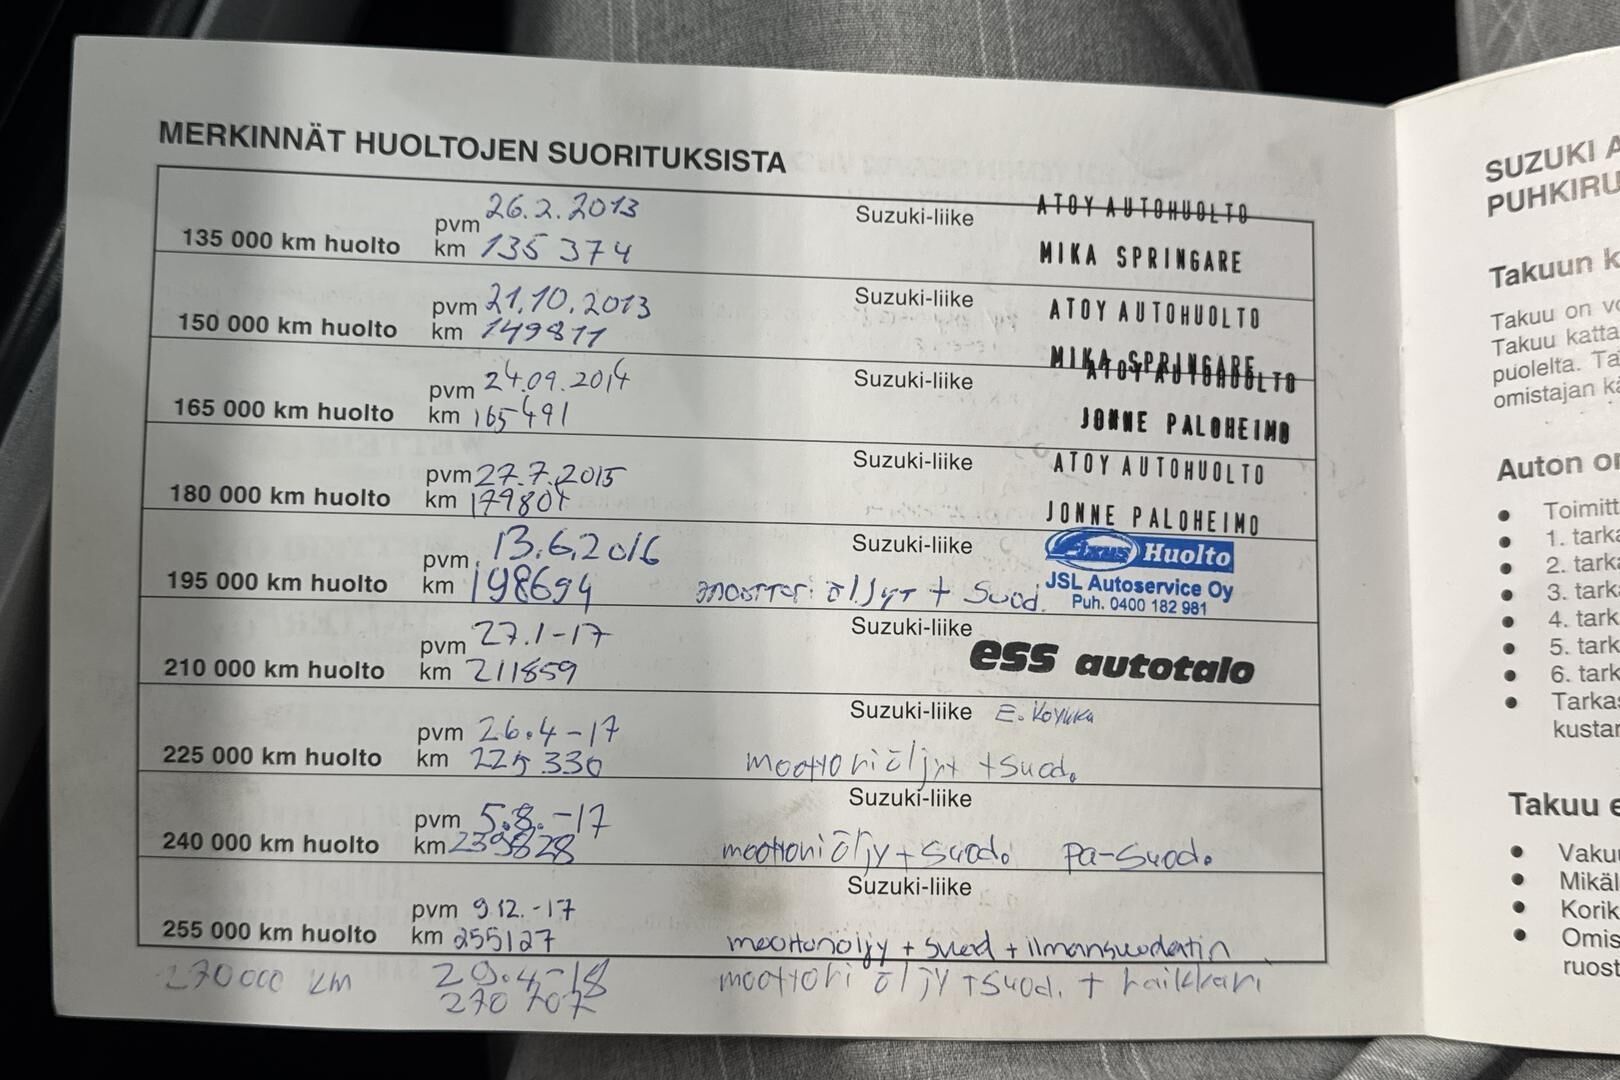 MERKINNÄT HUOLTOJEN SUORITUKSISTA
135 000 km huolto pvm 26.2.2013 km 135 374 Suzuki-liike ATOY AUTOHUOLTO MIKA SPRINGARE
150 000 km huolto pvm 21.10.2013 km 149811 Suzuki-liike ATOY AUTOHUOLTO MIKA SPRINGARE
165 000 km huolto pvm 24.09.2014 km 165491 Suzuki-liike ATOY AUTOHUOLTO JONNE PALOHEIMO
180 000 km huolto pvm 27.7.2015 km 179801 Suzuki-liike ATOY AUTOHUOLTO JONNE PALOHEIMO
195 000 km huolto pvm 13.6.2016 km 198694 Suzuki-liike moottori öljyt + Suod. Fixus Huolto JSL Autoservice Oy Puh. 0400 182 981
210 000 km huolto pvm 27.1-17 km 211859 Suzuki-liike ess autotalo
225 000 km huolto pvm 26.4-17 km 225 330 Suzuki-liike E. Koykka moottoriöljyt +suod.
240 000 km huolto pvm 5.8.-17 km 239828 Suzuki-liike moottoriöljy + suod. pa-suod.
255 000 km huolto pvm 9.12.-17 km 255127 Suzuki-liike moottoriöljy + suod + ilmansuodatin
270000 km 29.4-18 270 707 moottori öljy +suod. + raikkari
SUZUKI A
PUHKIRU
Takuun k
Takuu on vo
Takuu katta
puolelta. Ta
omistajan kä
Auton o
• Toimitt
• 1. tarka
• 2. tarka
• 3. tarka
• 4. tark
• 5. tark
• 6. tark
• Tarkas
kustar
Takuu e
• Vakuu
• Mikäl
• Korik
• Omis
ruost